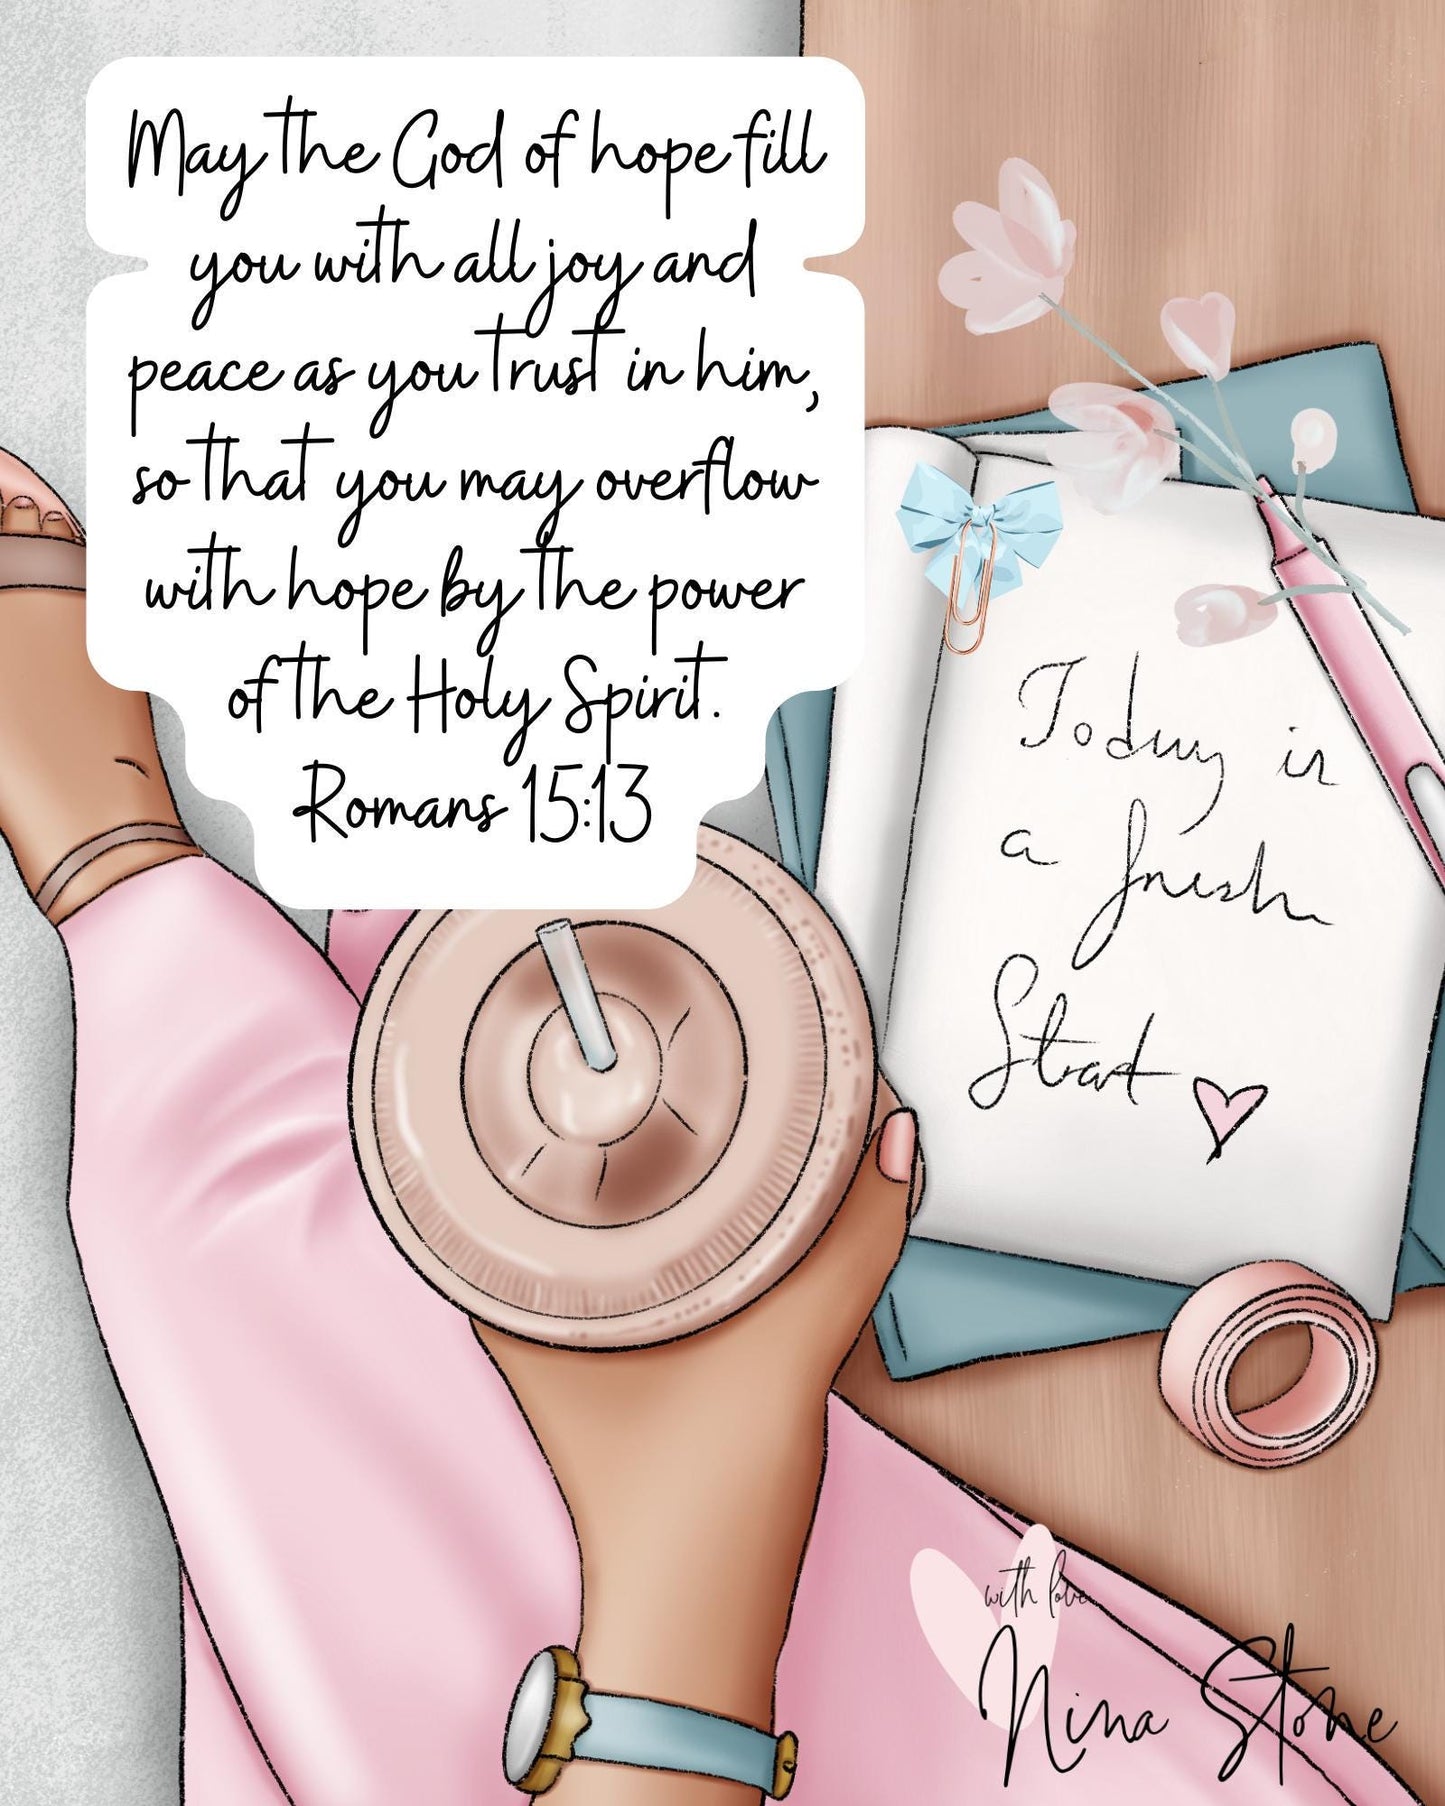 May the God of hope fill
you with all joy and
peace as you trust in him,
so that you may overflow
with hope by the power
of the Holy Spirit.
Romans 15:13
Today is
a fresh
Start
with love
Nina Stone